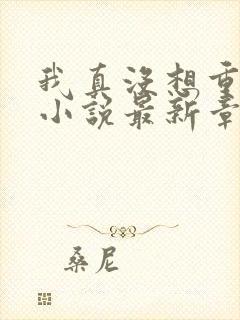 我真没想重
小说最新章
桑尼